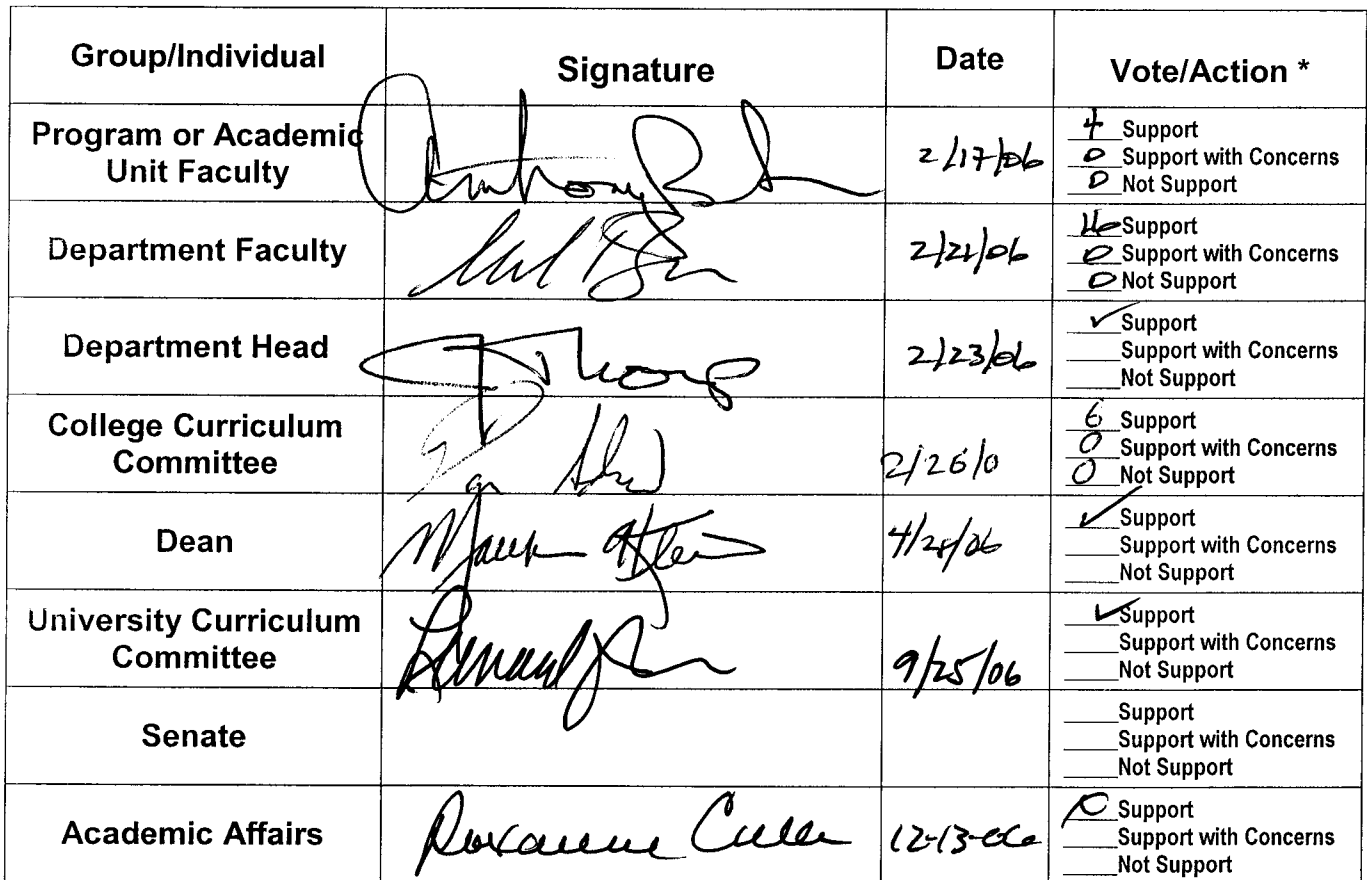 Group/Individual Signature Date Vote/Action *
Program or Academic Unit Faculty Anthony 2/17/06
4 Support
0 Support with Concerns
0 Not Support
Department Faculty
Support
0 Support with Concerns
0 Not Support
Department Head 2/23/06
✓ Support
Support with Concerns
Not Support
College Curriculum Committee 2/26/0
6 Support
0 Support with Concerns
0 Not Support
Dean
✓ Support
Support with Concerns
Not Support
University Curriculum Committee 9/25/06
✓ Support
Support with Concerns
Not Support
Senate
Support
Support with Concerns
Not Support
Academic Affairs Roxanne Cullen 12-13-06
Support
Support with Concerns
Not Support